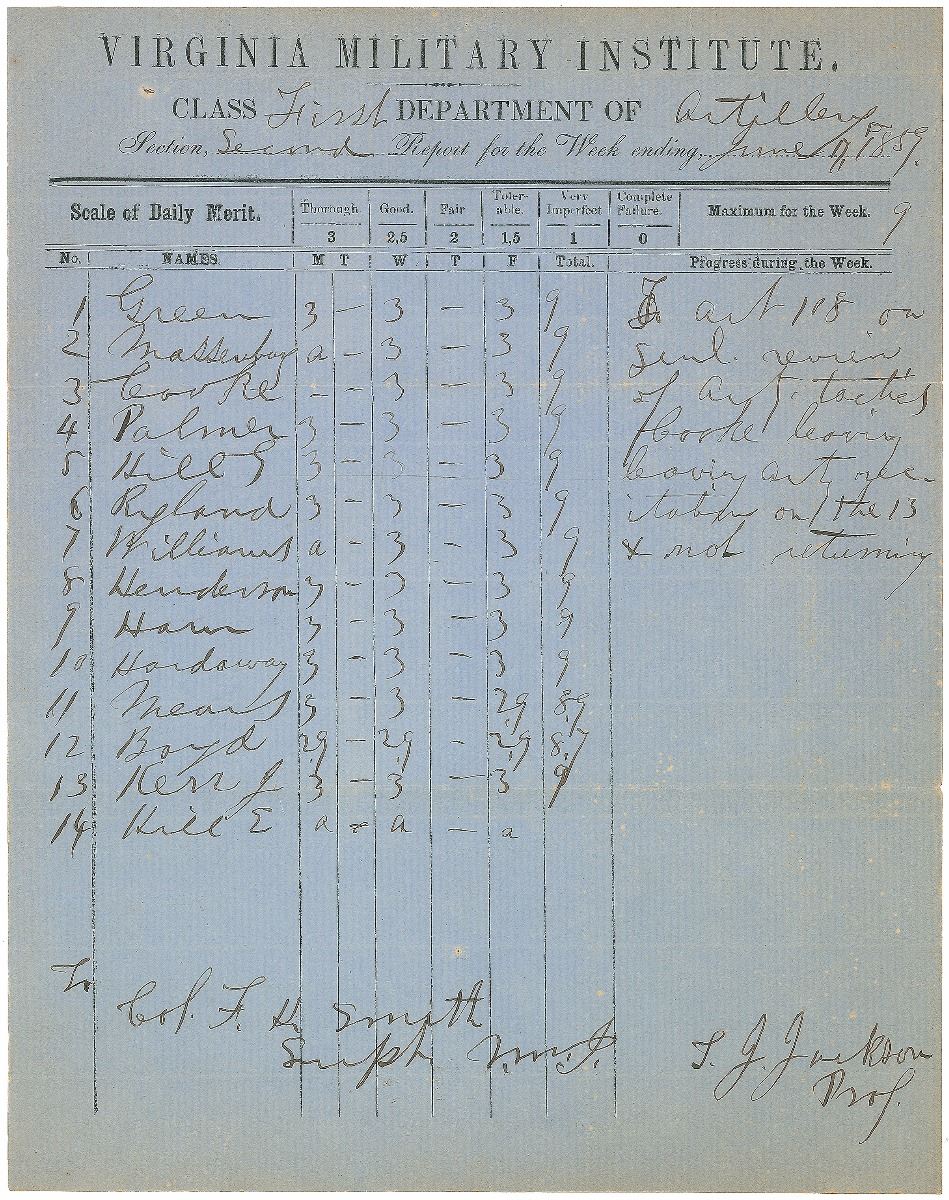 VIRGINIA MILITARY INSTITUTE.
CLASS First DEPARTMENT OF Artillery
Section, Second Report for the Week ending, June 17, 1859.
Scale of Daily Merit. Thorough. Good. Fair Toler-able. Very Imperfect Complete Failure. Maximum for the Week. 9
3 2,5 2 1,5 1 0
No. NAMES. M T W T F Total. Progress during the Week.
1 Green 3 — 3 — 3 9 To art 118 on
2 Massenburg a — 3 — 3 9 genl. review
3 Cooke – — 3 — 3 9 of Art. tactics
4 Palmer 3 — 3 — 3 9 Cooke leaving
5 Hill G 3 — 3 — 3 9 leaving art rec-
6 Ryland 3 — 3 — 3 9 itation on the 13
7 Williams a — 3 — 3 9 & not returning
8 Henderson 3 — 3 — 3 9
9 Ham 3 — 3 — 3 9
10 Hardaway 3 — 3 — 3 9
11 Mears 3 — 3 — 2,9 8,9
12 Boyd 2,9 — 2,9 — 2,9 8,7
13 Kerr J 3 — 3 — 3 9
14 Hill E a — a — a
To
Col. F. H. Smith
Supt V.M.I.
T. J. Jackson
Prof.